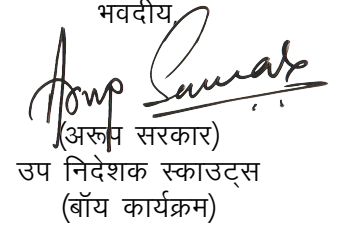 भवदीय,
Arup Sarkar
(अरूप सरकार)
उप निदेशक स्काउट्स
(बॉय कार्यक्रम)